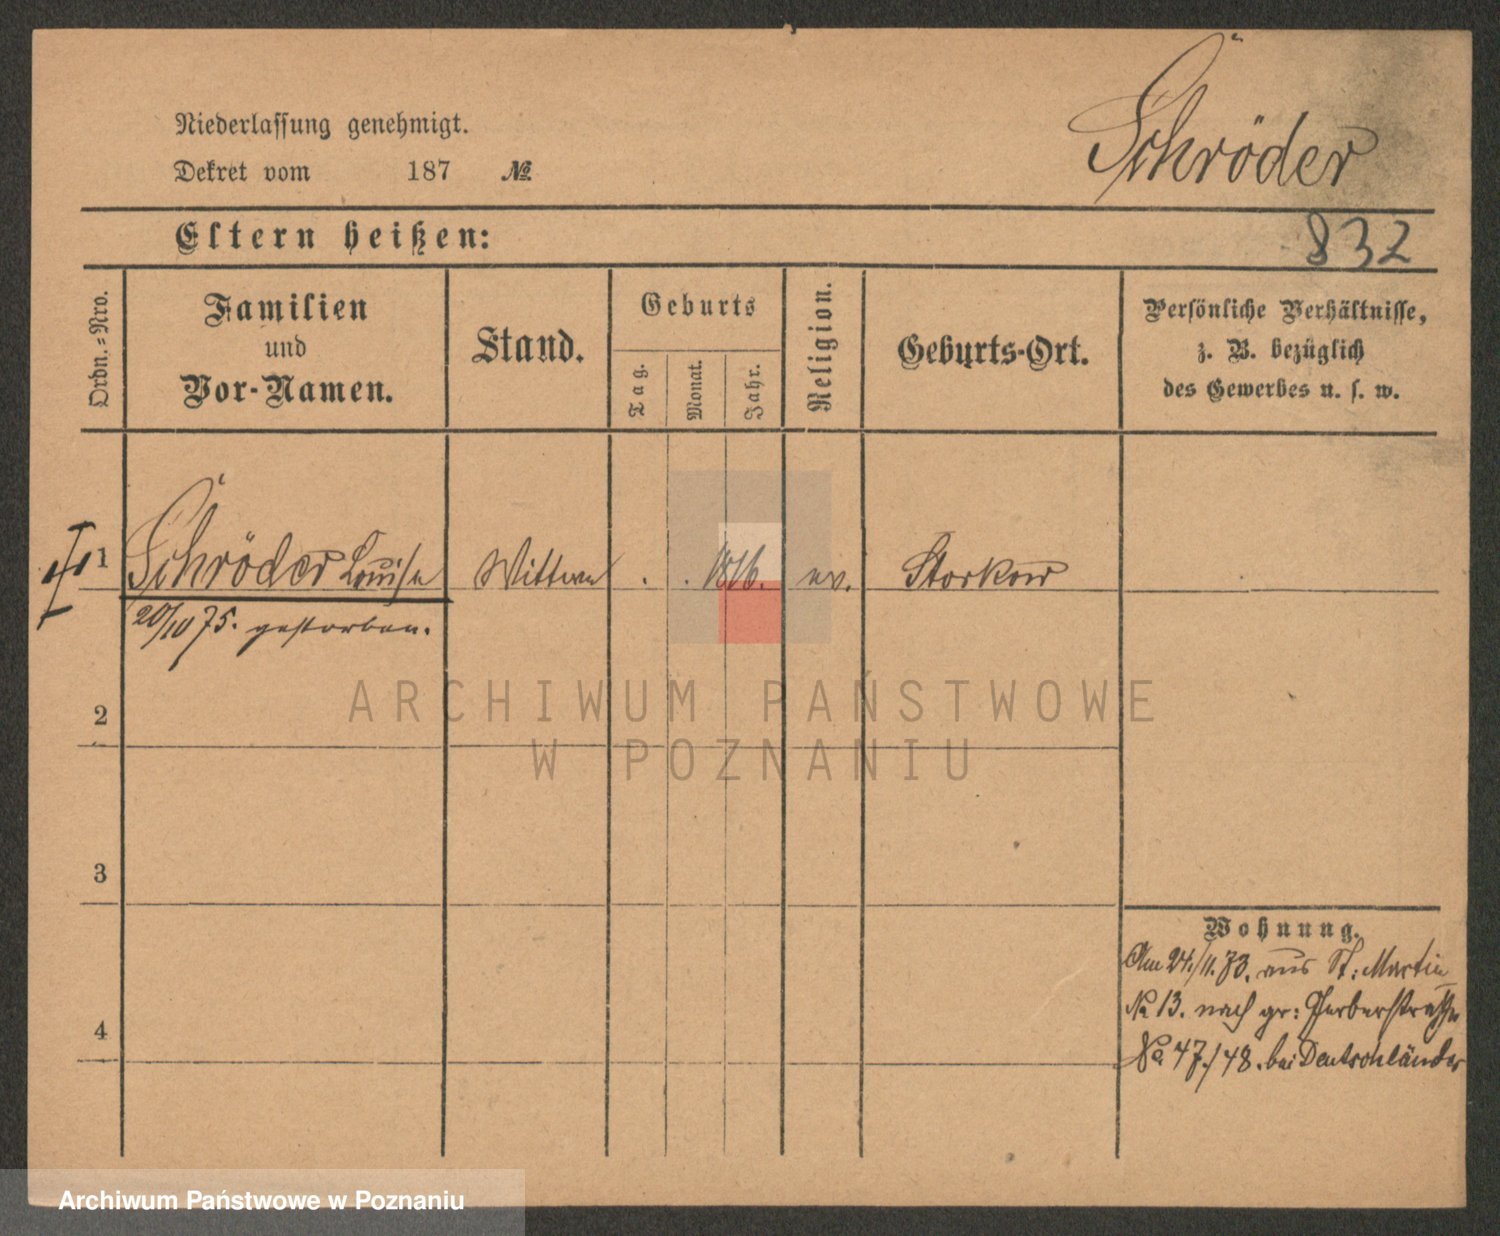 Schröder
Niederlassung genehmigt.
Dekret vom 187 №
Eltern heißen:
832
Ordn.=Nro.
Familien
und
Vor-Namen.
Stand.
Geburts
Tag.
Monat.
Jahr.
Religion.
Geburts-Ort.
Persönliche Verhältnisse,
z. B. bezüglich
des Gewerbes u. s. w.
1 Schröder Louise Wittwe . . 1816. ev. Storkow
20/10 75. gestorben.
2
3
4
Wohnung.
Am 24./11. 73. aus St: Martin
No 13. nach gr: Gerberstrasse
No 47./48. bei Deutschländer
ARCHIWUM PAŃSTWOWE
W POZNANIU
Archiwum Państwowe w Poznaniu